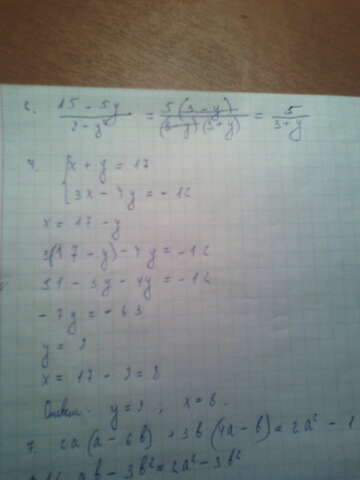 2. (15 - 5y)/(9 - y²) = 5(3 - y)/((3 - y)(3 + y)) = 5/(3 + y)
4. { x + y = 17
3x - 4y = -12
x = 17 - y
3(17 - y) - 4y = -12
51 - 3y - 4y = -12
-7y = -63
y = 9
x = 17 - 9 = 8
Ответ. y = 9, x = 8.
7. 2a(a - 6b) + 3b(4a - b) = 2a² - 1
ab - 3b² = 2a² - 3b²